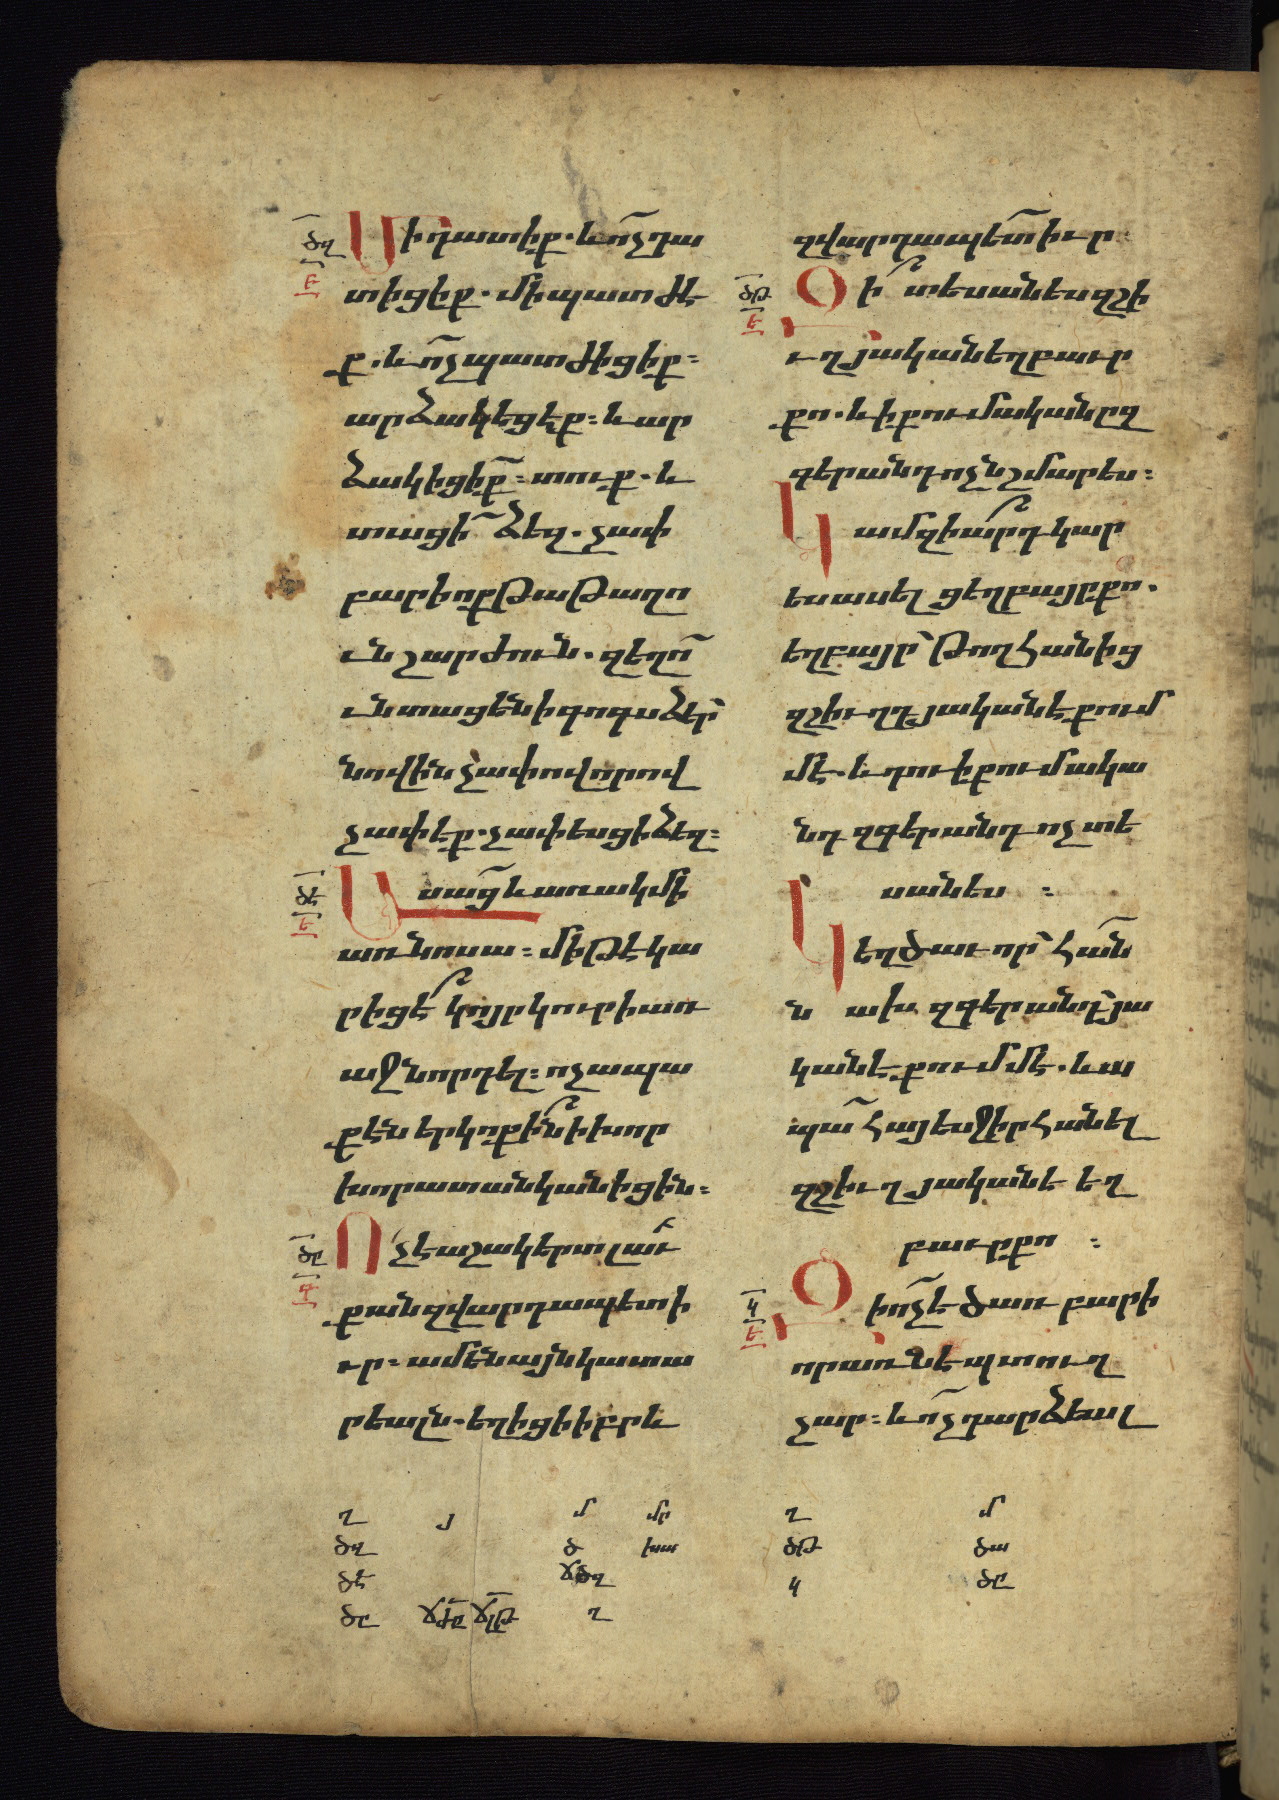 ծզ
ե
Մի դատիք. և ո՛չ դա
տիցիք. մի պատժէ
ք. և ո՛չ պատժիցիք:
արձակեցէք: և ար
ձակիցիք՜: տուք. և
տացի՜ ձեզ. չափ
բարիոք թաթաղո
ւն շարժուն. զեղո՜
ւն տացեն ի գոգս ձեր՝
նովին չափով որով
չափէք. չափեսցի ձեզ:
ծէ
ե
Ասաց և առակ մի
առ նոսա: մի թէ կա
րիցէ՞ կոյր կուրի առ
աջնորդել: ոչ ապա
քէն երկոքի՞ն ի խոր
խորատ անկանիցին:
ծը
Ոչ է աշակերտ լաւ
քան զվարդապետ ի
ւր: ամենայն կատա
րեալն. եղիցի իբրև
զվարդապետ իւր
ծթ
ե
Զի՞ տեսանես զշի
ւղ յական եղբաւր
քո. և ի քում ականըդ
գերանդ ոչ նշմարես:
Կամ զիա՞րդ կար
ես ասել ցեղբայր քո.
եղբայր՝ թող հանից
զշիւղդ յականէ քում
մէ. և դու ի քում ակա
նդ զգերանդ ոչ տե
սանես :
Կեղծաւոր՝ հան
ն ախ զգերանդ յա
կանէ քումմէ. և ա
պա՜ հայեսջիր հանել
զշիւղ յականէ եղ
բաւր քո :
կ
ե
Զի ո՛չ է ծառ բարի
որ առնէ պտուղ
չար: և ո՛չ դարձեալ
ղ յ մ մր ղ մ
ծզ ծ խա ծթ ծա
ծէ ճծզ կ ծը
ծը ճժը ճլթ ղ